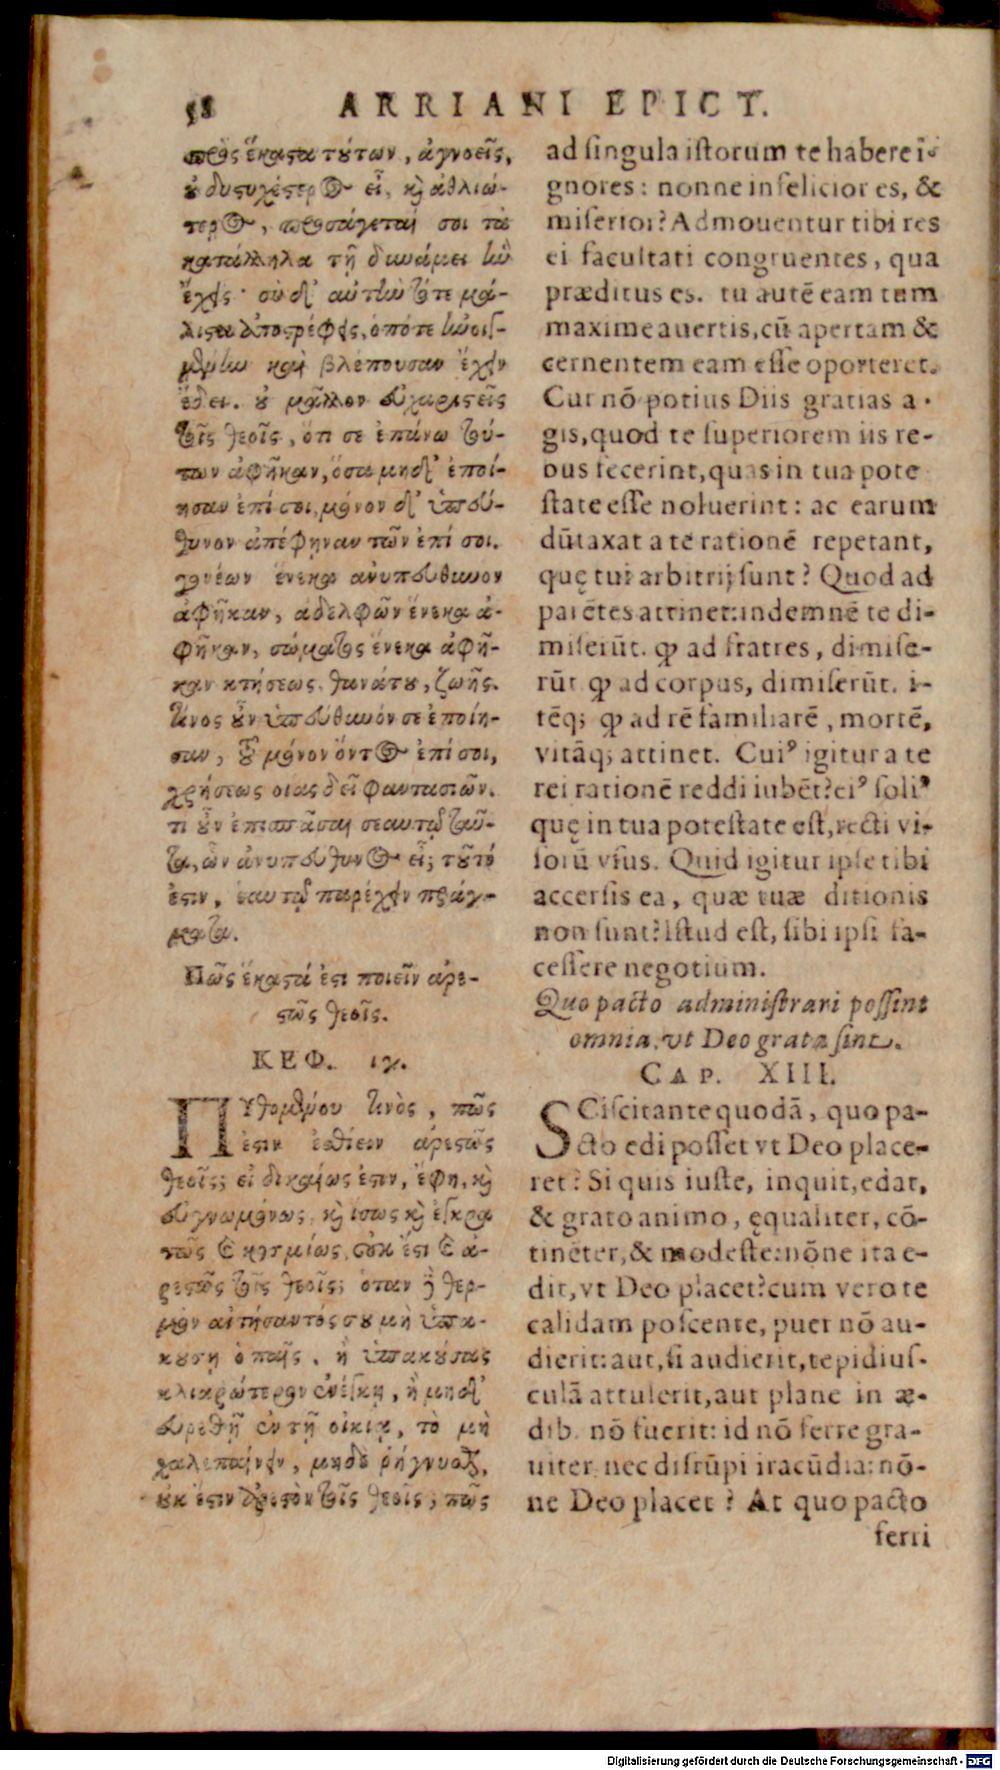 58 ARRIANI EPICT.
πρὸς ἕκαστα τούτων, ἀγνοεῖς,
οὐ δυστυχέστερος εἶ, καὶ ἀθλιώ-
τερος, προσάγεταί σοι τὰ
κατάλληλα τῇ δυνάμει ἣν
ἔχεις· σὺ δ' αὐτὴν τότε μά-
λιστα ἀποστρέφεις, ὁπότε ἠνοιγ-
μένην καὶ βλέπουσαν ἔχειν
ἔδει. οὐ μᾶλλον εὐχαριστεῖς
τοῖς θεοῖς, ὅτι σε ἐπάνω τού-
των ἀφῆκαν, ὅσα μηδ' ἐποί-
ησαν ἐπί σοι, μόνον δ' ὑπεύ-
θυνον ἀπέφηναν τῶν ἐπί σοι.
γονέων ἕνεκα ἀνυπεύθυνον
ἀφῆκαν, ἀδελφῶν ἕνεκα ἀ-
φῆκαν, σώματος ἕνεκα ἀφῆ-
καν κτήσεως, θανάτου, ζωῆς.
τίνος οὖν ὑπεύθυνόν σε ἐποίη-
σαν, τοῦ μόνον ὄντος ἐπί σοι,
χρήσεως οιας δεῖ φαντασιῶν.
τι οὖν ἐπισπᾶσαι σεαυτῷ ταῦ-
τα, ὧν ἀνυπεύθυνος εἶ; τοῦτό
ἐστιν, ἑαυτῷ παρέχειν πράγ-
ματα.
Πῶς ἕκαστά ἐστι ποιεῖν ἀρε-
στῶς θεοῖς.
ΚΕΦ. ιγ.
Πυθομένου τινὸς, πῶς
ἐστιν ἐσθίειν ἀρεστῶς
θεοῖς; εἰ δικαίως ἐστιν, ἔφη, καὶ
εὐγνωμόνως, καὶ ἴσως καὶ ἐγκρα
τῶς καὶ κοσμίως, οὐκ ἔστι καὶ ἀ-
ρεστῶς τοῖς θεοῖς; ὅταν δὲ θερ-
μὸν αἰτήσαντός σου μὴ ὑπα-
κούσῃ ὁ παῖς, ἢ ὑπακούσας
χλιαρώτερον ἐνέγκῃ, ἢ μηδ'
εὑρεθῇ ἐν τῇ οἰκίᾳ, τὸ μὴ
χαλεπαίνειν, μηδὲ ῥήγνυσθαι,
οὐκ ἔστιν ἀρεστὸν τοῖς θεοῖς; πῶς
ad singula istorum te habere i-
gnores: nonne infelicior es, &
miserior? Admouentur tibi res
ei facultati congruentes, qua
præditus es. tu autē eam tum
maxime auertis, cū apertam &
cernentem eam esse oporteret.
Cur nō potius Diis gratias a-
gis, quod te superiorem iis re-
bus fecerint, quas in tua pote
state esse noluerint: ac earum
dūtaxat a te rationē repetant,
quę tui arbitrij sunt? Quod ad
parētes attinet: indemnē te di-
miserūt. ꝙ ad fratres, dimise-
rūt ꝙ ad corpus, dimiserūt. i-
tēq; ꝙ ad rē familiarē, mortē,
vitāq; attinet. Cuiꝰ igitur a te
rei rationē reddi iubēt? eiꝰ soliꝰ
quę in tua potestate est, recti vi-
sorū vsus. Quid igitur ipse tibi
accersis ea, quæ tuæ ditionis
non sunt? Istud est, sibi ipsi fa-
cessere negotium.
Quo pacto administrari possint
omnia, vt Deo grata sint.
CAP. XIII.
SCiscitante quodā, quo pa-
cto edi posset vt Deo place-
ret? Si quis iuste, inquit, edat,
& grato animo, ęqualiter, cō-
tinēter, & modeste: nōne ita e-
dit, vt Deo placet? cum vero te
calidam poscente, puer nō au-
dierit: aut, si audierit, tepidius-
culā attulerit, aut plane in æ-
dib. nō fuerit: id nō ferre gra-
uiter, nec disrūpi iracūdia: nō-
ne Deo placet? At quo pacto
ferri
Digitalisierung gefördert durch die Deutsche Forschungsgemeinschaft - DFG